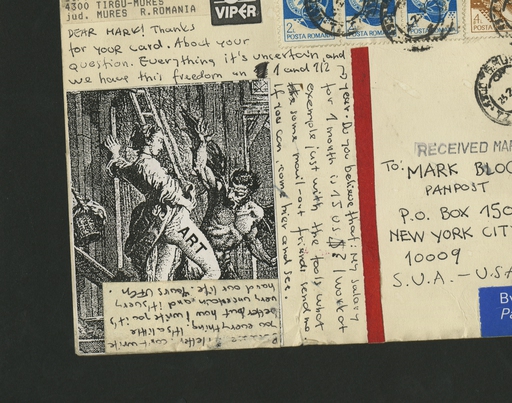 4300 TIRGU-MURES
jud. MURES R.ROMANIA
VIPER
DEAR MARK! Thanks
for your card. About your
question. Everything it's uncertain, and
we have this freedom on 1 and 1/2
year. Do you believe that: My salary
for 1 month is 15 US $? I work at
example just with the tools what
some mail-art friends send me
If you can, come hier and see.
ART
letter, can't write
you everything, it's a little
better but how I write you it's
very uncertain and it's very
hard our life. Yours
2L
POSTA ROMANA
POSTA ROMANA
POSTA ROMANA
RECEIVED MAR
To: MARK BLO
PANPOST
P.O. BOX 150
NEW YORK CIT
10009
S.U.A. - USA
By
Pa